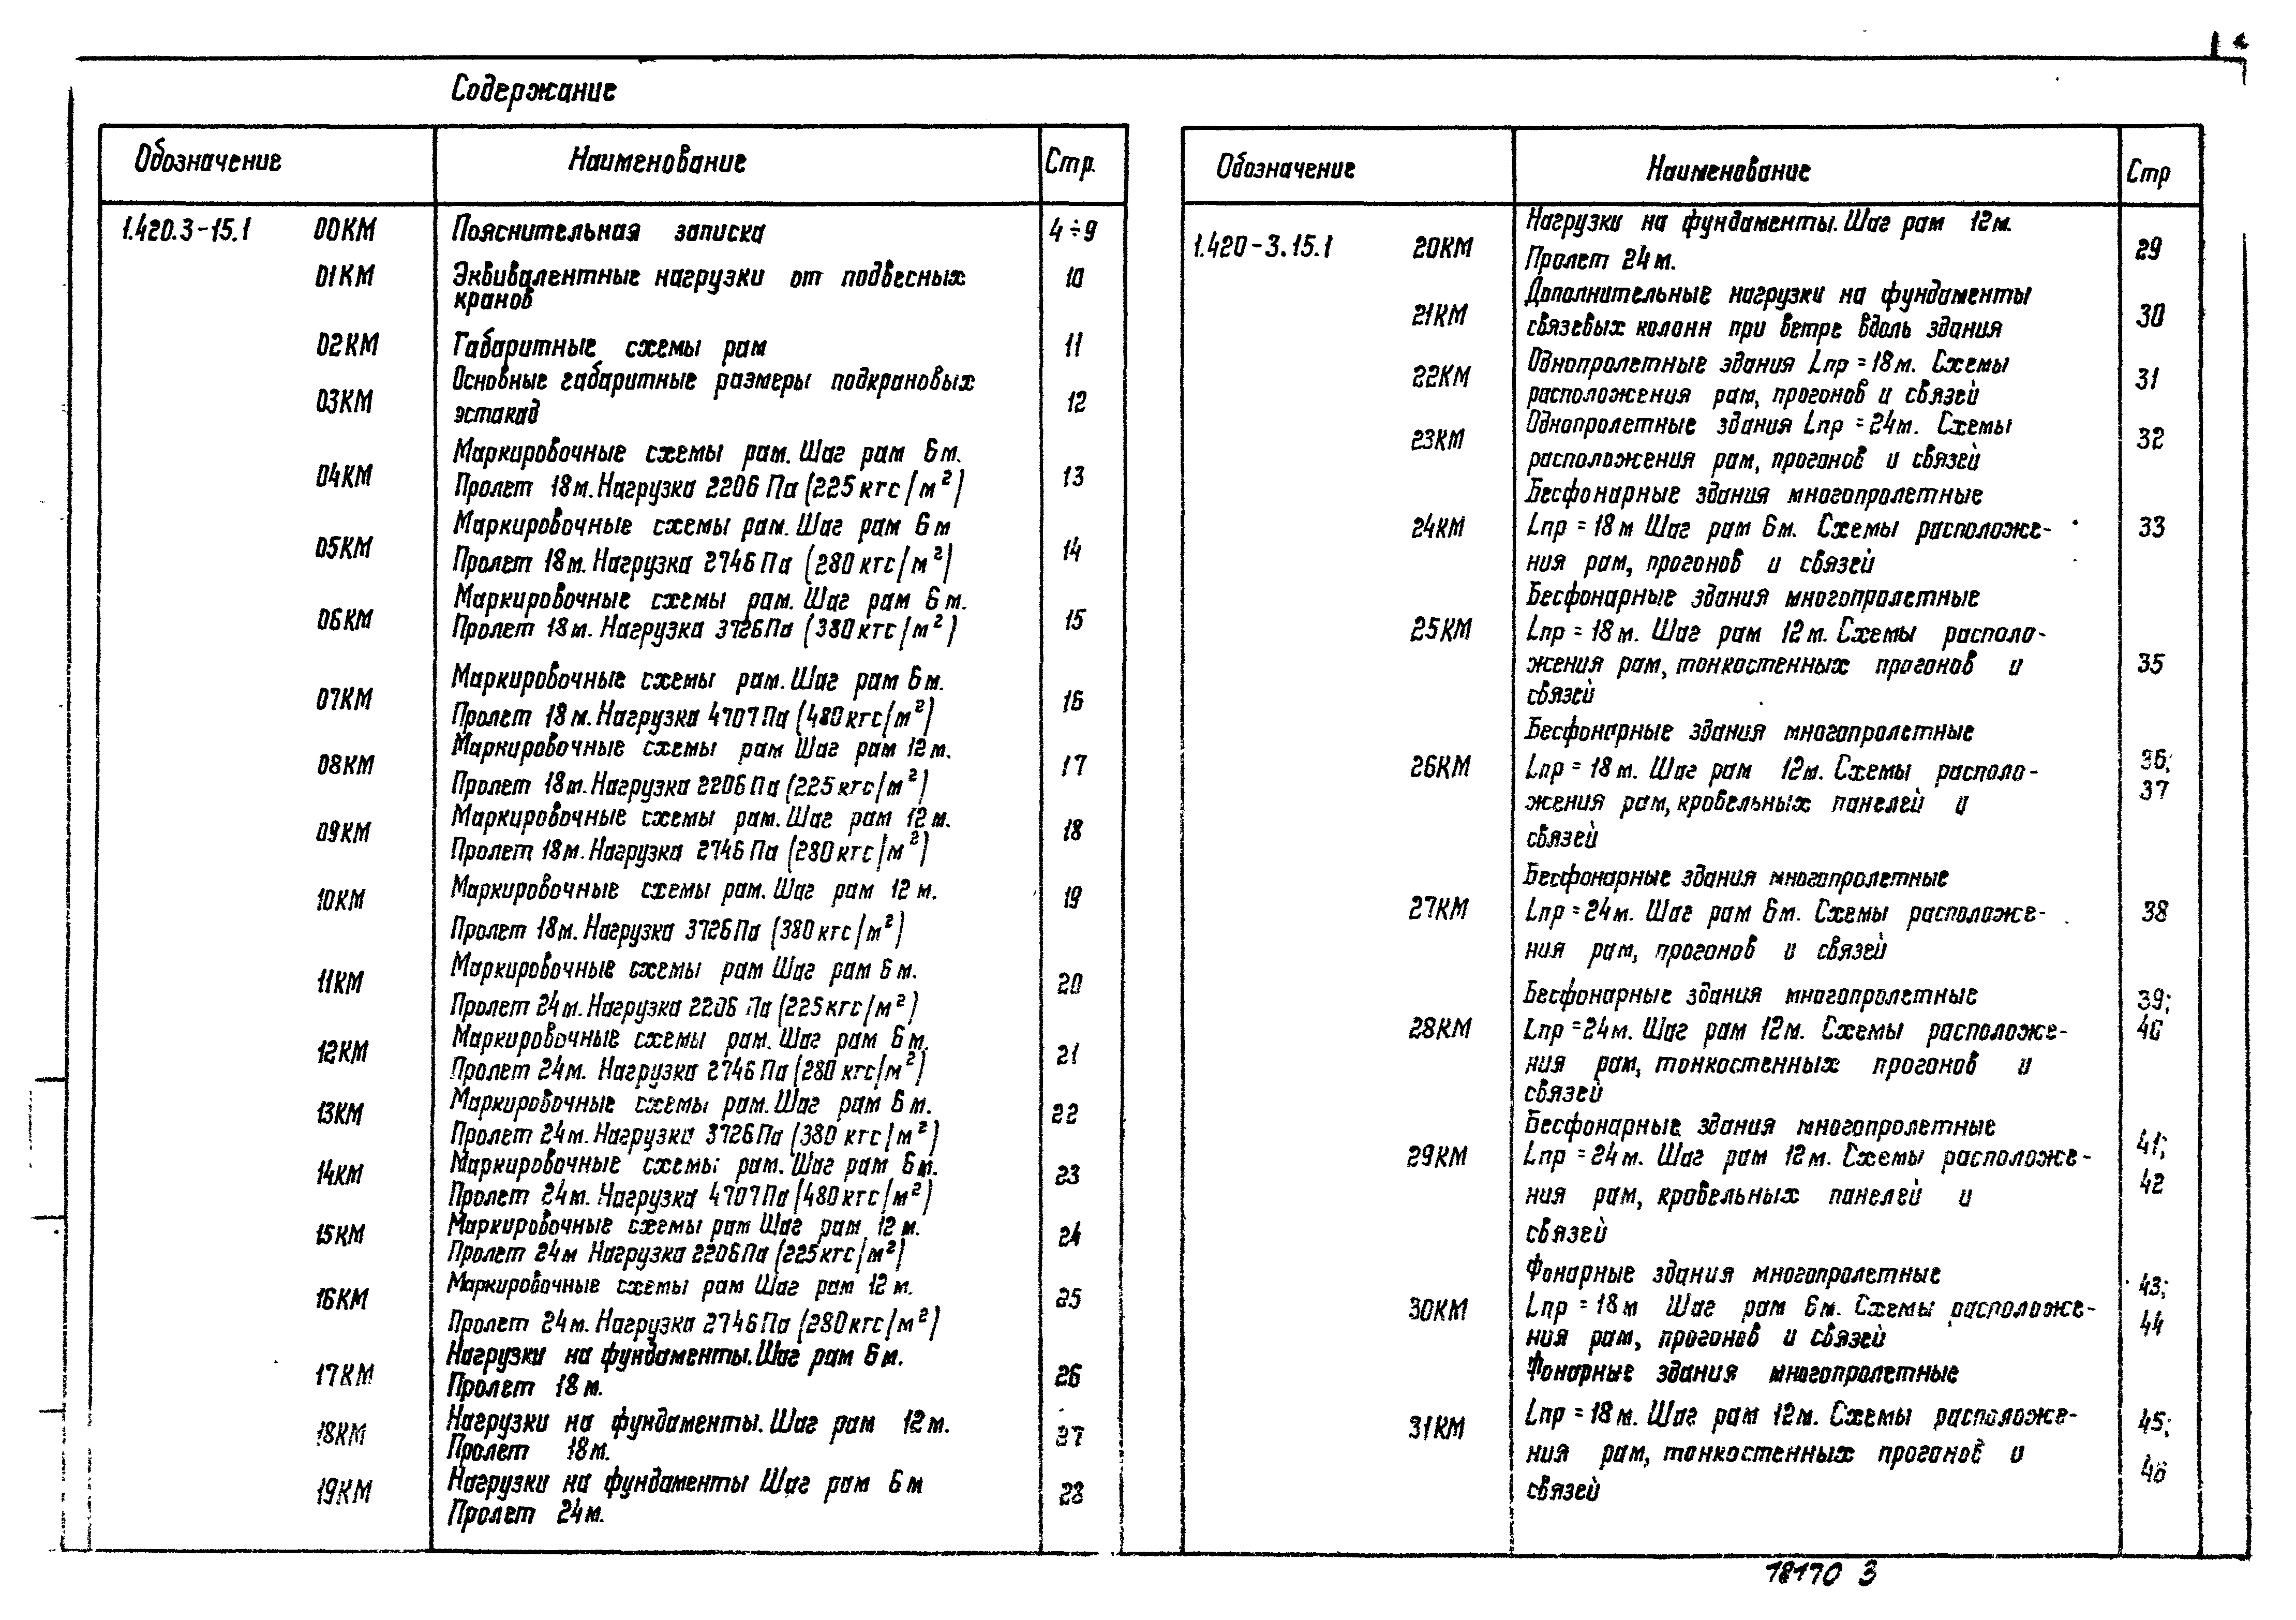 Содержание
Обозначение Наименование Стр.
1.420.3-15.1 00КМ Пояснительная записка 4÷9
01КМ Эквивалентные нагрузки от подвесных 10
кранов
02КМ Габаритные схемы рам 11
Основные габаритные размеры подкрановых
03КМ эстакад 12
Маркировочные схемы рам. Шаг рам 6м.
04КМ Пролет 18м. Нагрузка 2206 Па (225 кгс/м²) 13
Маркировочные схемы рам. Шаг рам 6м
05КМ Пролет 18м. Нагрузка 2746 Па (280 кгс/м²) 14
Маркировочные схемы рам. Шаг рам 6м.
06КМ Пролет 18м. Нагрузка 3726 Па (380 кгс/м²) 15
Маркировочные схемы рам. Шаг рам 6м.
07КМ Пролет 18м. Нагрузка 4707 Па (480 кгс/м²) 16
Маркировочные схемы рам Шаг рам 12м.
08КМ Пролет 18м. Нагрузка 2206 Па (225 кгс/м²) 17
Маркировочные схемы рам. Шаг рам 12м.
09КМ Пролет 18м. Нагрузка 2746 Па (280 кгс/м²) 18
10КМ Маркировочные схемы рам. Шаг рам 12м. 19
Пролет 18м. Нагрузка 3726 Па (380 кгс/м²)
Маркировочные схемы рам Шаг рам 6м.
11КМ Пролет 24м. Нагрузка 2206 Па (225 кгс/м²) 20
Маркировочные схемы рам. Шаг рам 6м.
12КМ Пролет 24м. Нагрузка 2746 Па (280 кгс/м²) 21
13КМ Маркировочные схемы рам. Шаг рам 6м. 22
Пролет 24м. Нагрузка 3726 Па (380 кгс/м²)
14КМ Маркировочные схемы рам. Шаг рам 6м. 23
Пролет 24м. Нагрузка 4707 Па (480 кгс/м²)
15КМ Маркировочные схемы рам Шаг рам 12м. 24
Пролет 24м Нагрузка 2206 Па (225 кгс/м²)
16КМ Маркировочные схемы рам Шаг рам 12м. 25
Пролет 24м. Нагрузка 2746 Па (280 кгс/м²)
Нагрузки на фундаменты. Шаг рам 6м.
17КМ Пролет 18м. 26
18КМ Нагрузки на фундаменты. Шаг рам 12м. 27
Пролет 18м.
19КМ Нагрузки на фундаменты Шаг рам 6м 28
Пролет 24м.
Обозначение Наименование Стр
Нагрузки на фундаменты. Шаг рам 12м.
1.420-3.15.1 20КМ Пролет 24м. 29
Дополнительные нагрузки на фундаменты
21КМ связевых колонн при ветре вдоль здания 30
Однопролетные здания Lпр = 18м. Схемы
22КМ расположения рам, прогонов и связей 31
Однопролетные здания Lпр = 24м. Схемы
23КМ расположения рам, прогонов и связей 32
Бесфонарные здания многопролетные
24КМ Lпр = 18м Шаг рам 6м. Схемы расположе- 33
ния рам, прогонов и связей
Бесфонарные здания многопролетные
25КМ Lпр = 18м. Шаг рам 12м. Схемы располо-
жения рам, тонкостенных прогонов и 35
связей
Бесфонарные здания многопролетные 36;
26КМ Lпр = 18м. Шаг рам 12м. Схемы располо- 37
жения рам, кровельных панелей и
связей
Бесфонарные здания многопролетные
27КМ Lпр = 24м. Шаг рам 6м. Схемы расположе- 38
ния рам, прогонов и связей
Бесфонарные здания многопролетные 39;
28КМ Lпр = 24м. Шаг рам 12м. Схемы расположе- 40
ния рам, тонкостенных прогонов и
связей
Бесфонарные здания многопролетные
29КМ Lпр = 24м. Шаг рам 12м. Схемы расположе- 41;
ния рам, кровельных панелей и 42
связей
Фонарные здания многопролетные 43;
30КМ Lпр = 18м Шаг рам 6м. Схемы расположе- 44
ния рам, прогонов и связей
Фонарные здания многопролетные
31КМ Lпр = 18м. Шаг рам 12м. Схемы расположе- 45;
ния рам, тонкостенных прогонов и 46
связей
18170 3